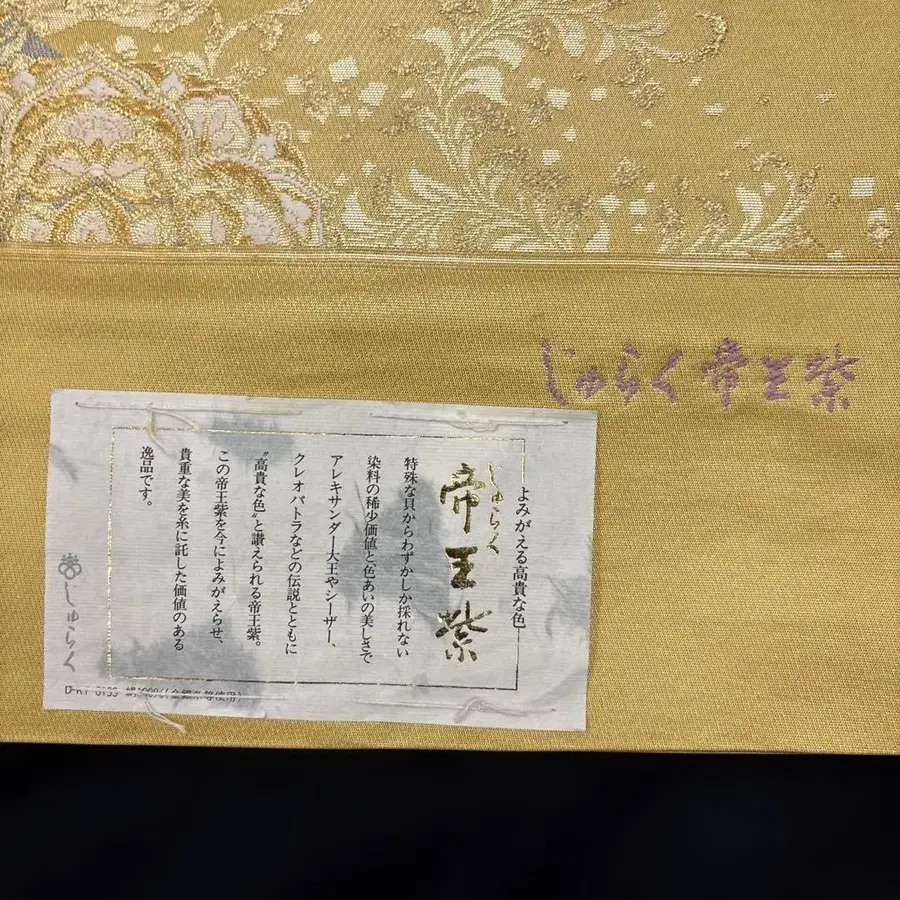 じゅらく帝王紫
よみがえる高貴な色
じゅらく
帝王紫
特殊な貝からわずかしか採れない
染料の稀少価値と、色あいの美しさで
アレキサンダー大王やシーザー、
クレオパトラなどの伝説とともに
〝高貴な色〟と讃えられる帝王紫。
この帝王紫を今によみがえらせ、
貴重な美を糸に託した価値のある
逸品です。
じゅらく
絹100%(金銀糸等使用)